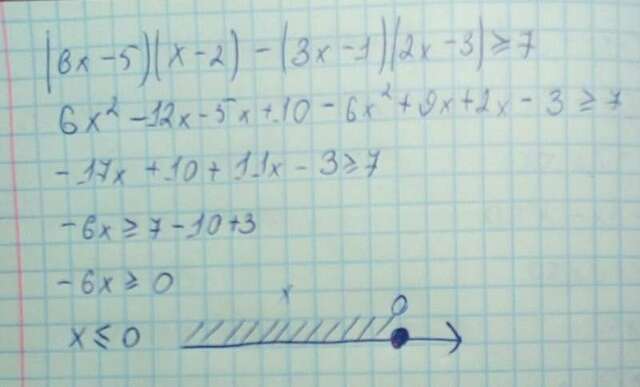 (6x-5)(x-2)-(3x-1)(2x-3)≥7
6x²-12x-5x+10-6x²+9x+2x-3≥7
-17x+10+11x-3≥7
-6x≥7-10+3
-6x≥0
x
0
x≤0